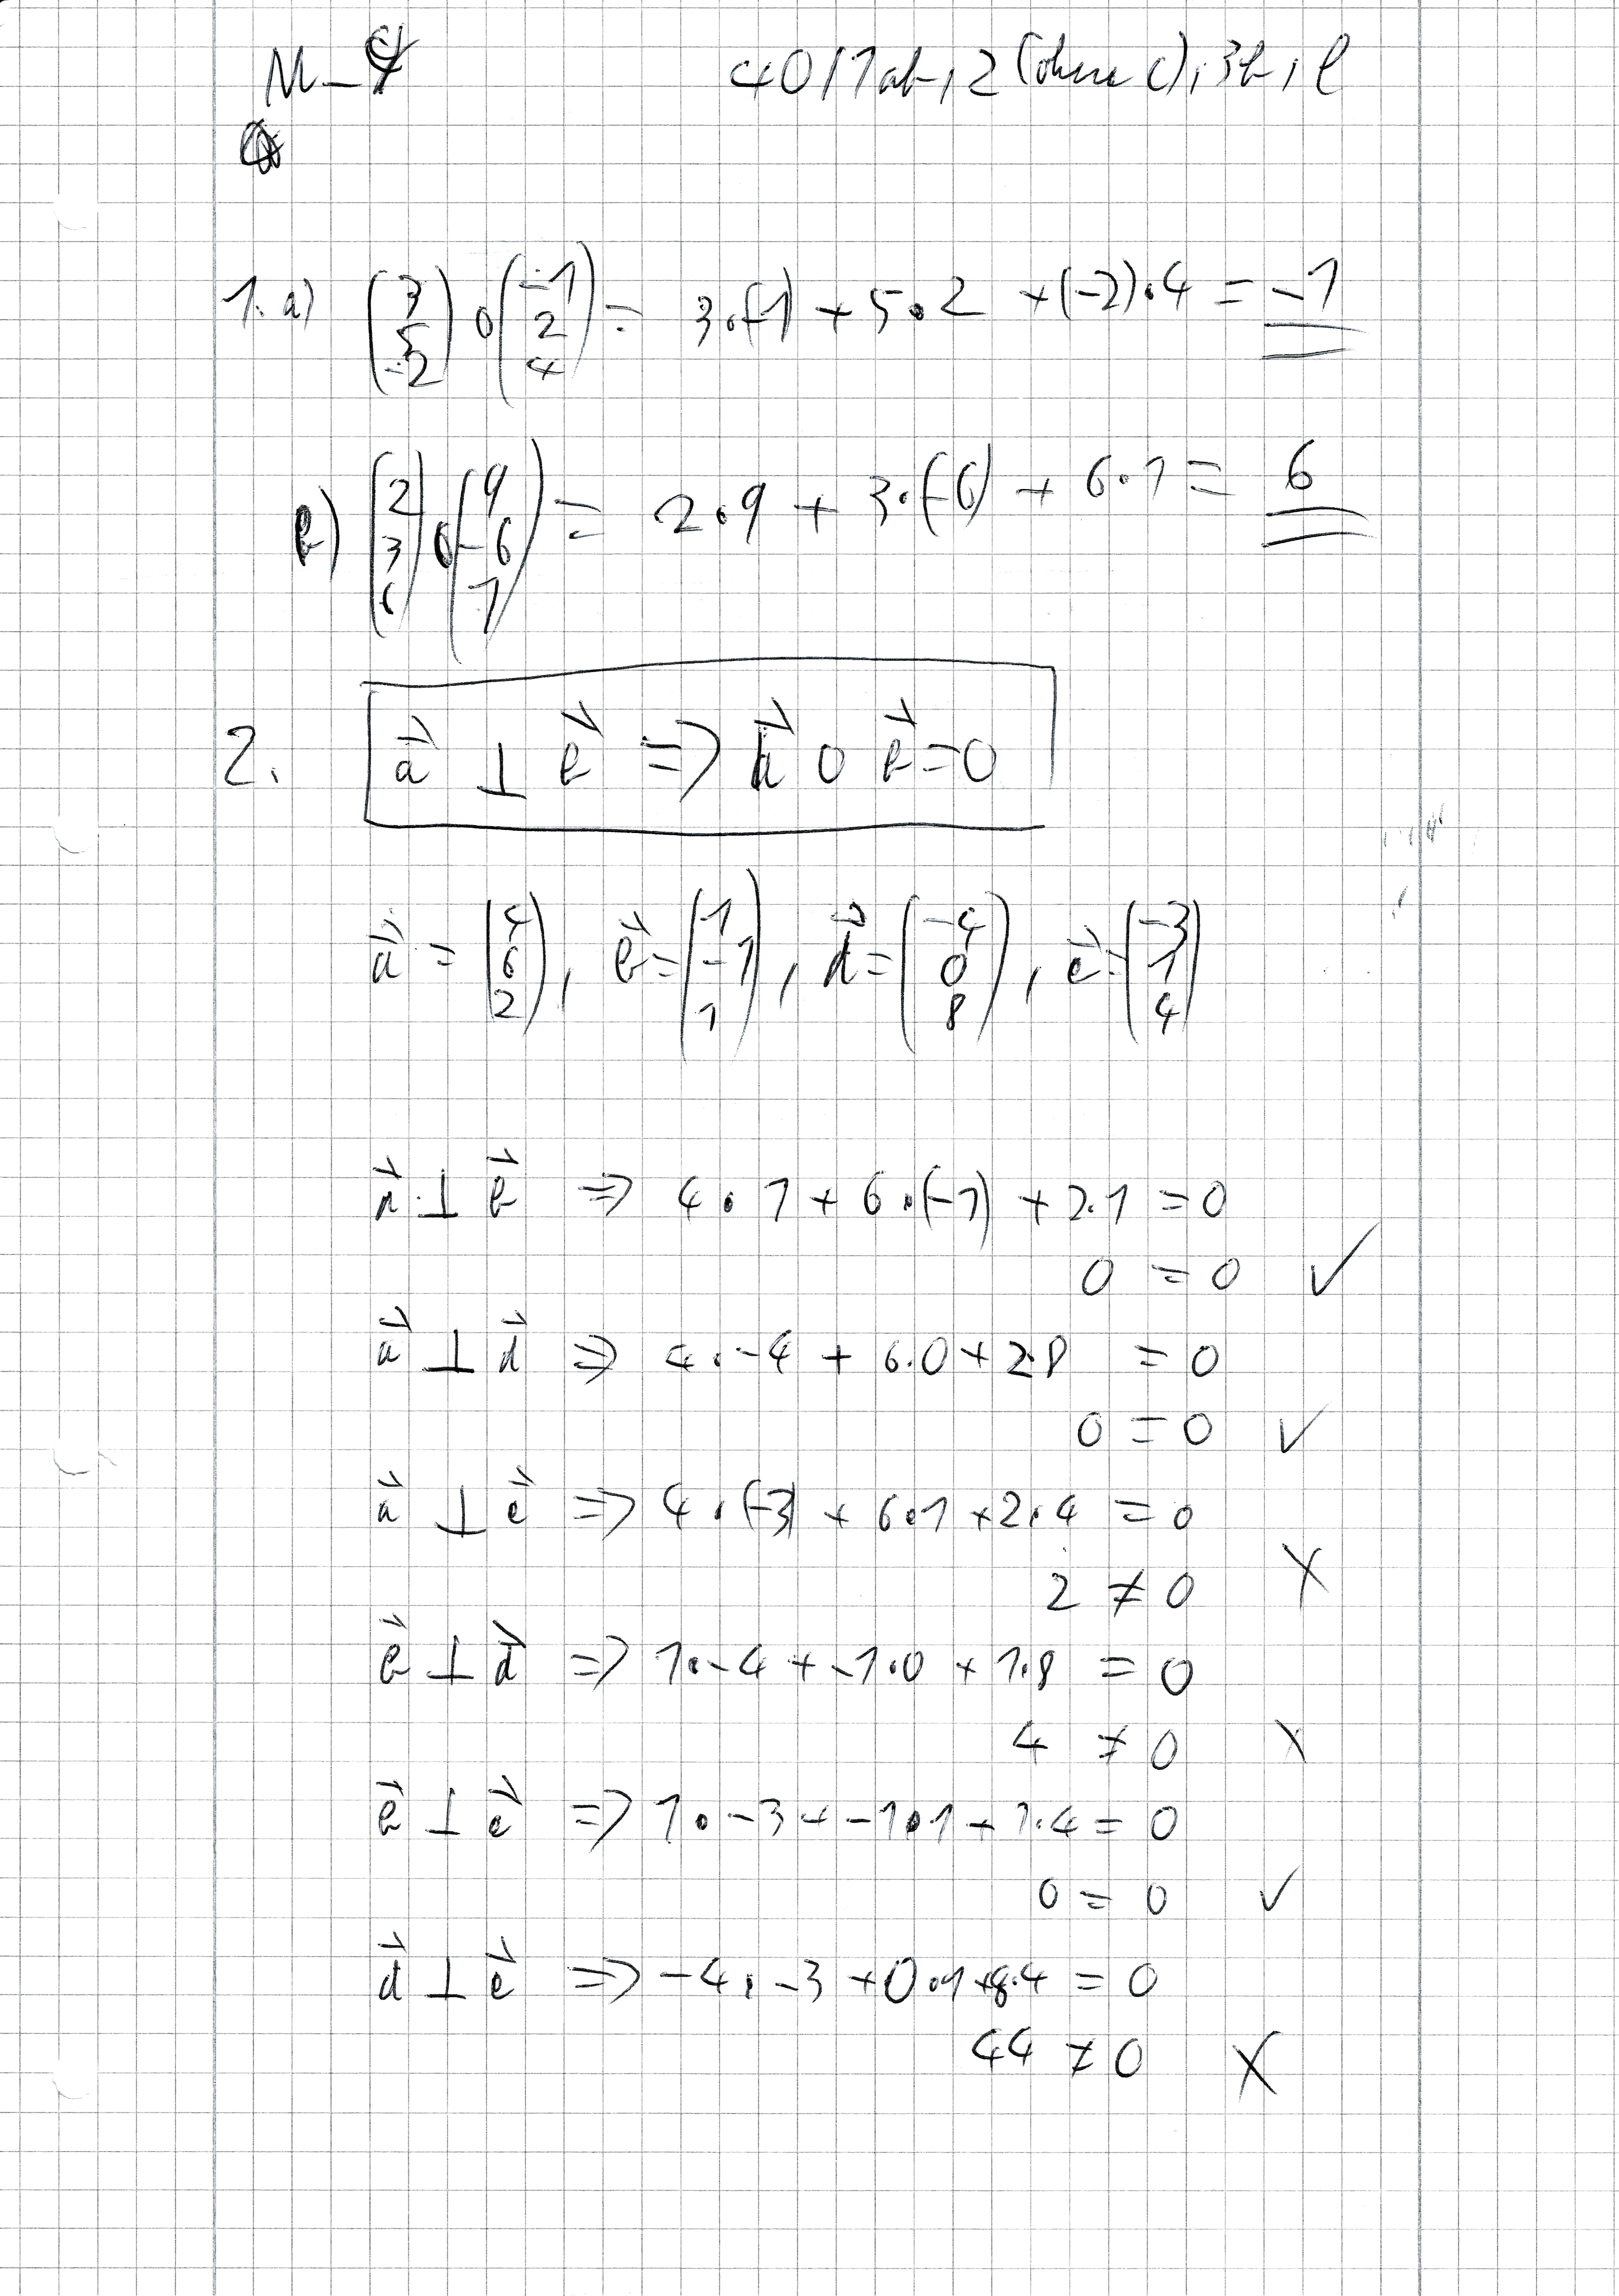 M-4
40/1ab, 2 (ohne c), 3b, e
1. a) (3 5 -2) ∘ (-1 2 4) = 3·(-1) + 5·2 + (-2)·4 = -1
b) (2 3 6) ∘ (9 -6 1) = 2·9 + 3·(-6) + 6·1 = 6
2. a⃗ ⊥ b⃗ => a⃗ ∘ b⃗ = 0
a⃗ = (4 6 2), b⃗ = (1 -1 1), d⃗ = (-4 0 8), e⃗ = (-3 1 4)
a⃗ ⊥ b⃗ => 4·1 + 6·(-1) + 2·1 = 0
0 = 0 ✓
a⃗ ⊥ d⃗ => 4·-4 + 6·0 + 2·8 = 0
0 = 0 ✓
a⃗ ⊥ e⃗ => 4·(-3) + 6·1 + 2·4 = 0
2 ≠ 0 X
b⃗ ⊥ d⃗ => 1·-4 + -1·0 + 1·8 = 0
4 ≠ 0 X
b⃗ ⊥ e⃗ => 1·-3 + -1·1 + 1·4 = 0
0 = 0 ✓
d⃗ ⊥ e⃗ => -4·-3 + 0·1 + 8·4 = 0
44 ≠ 0 X